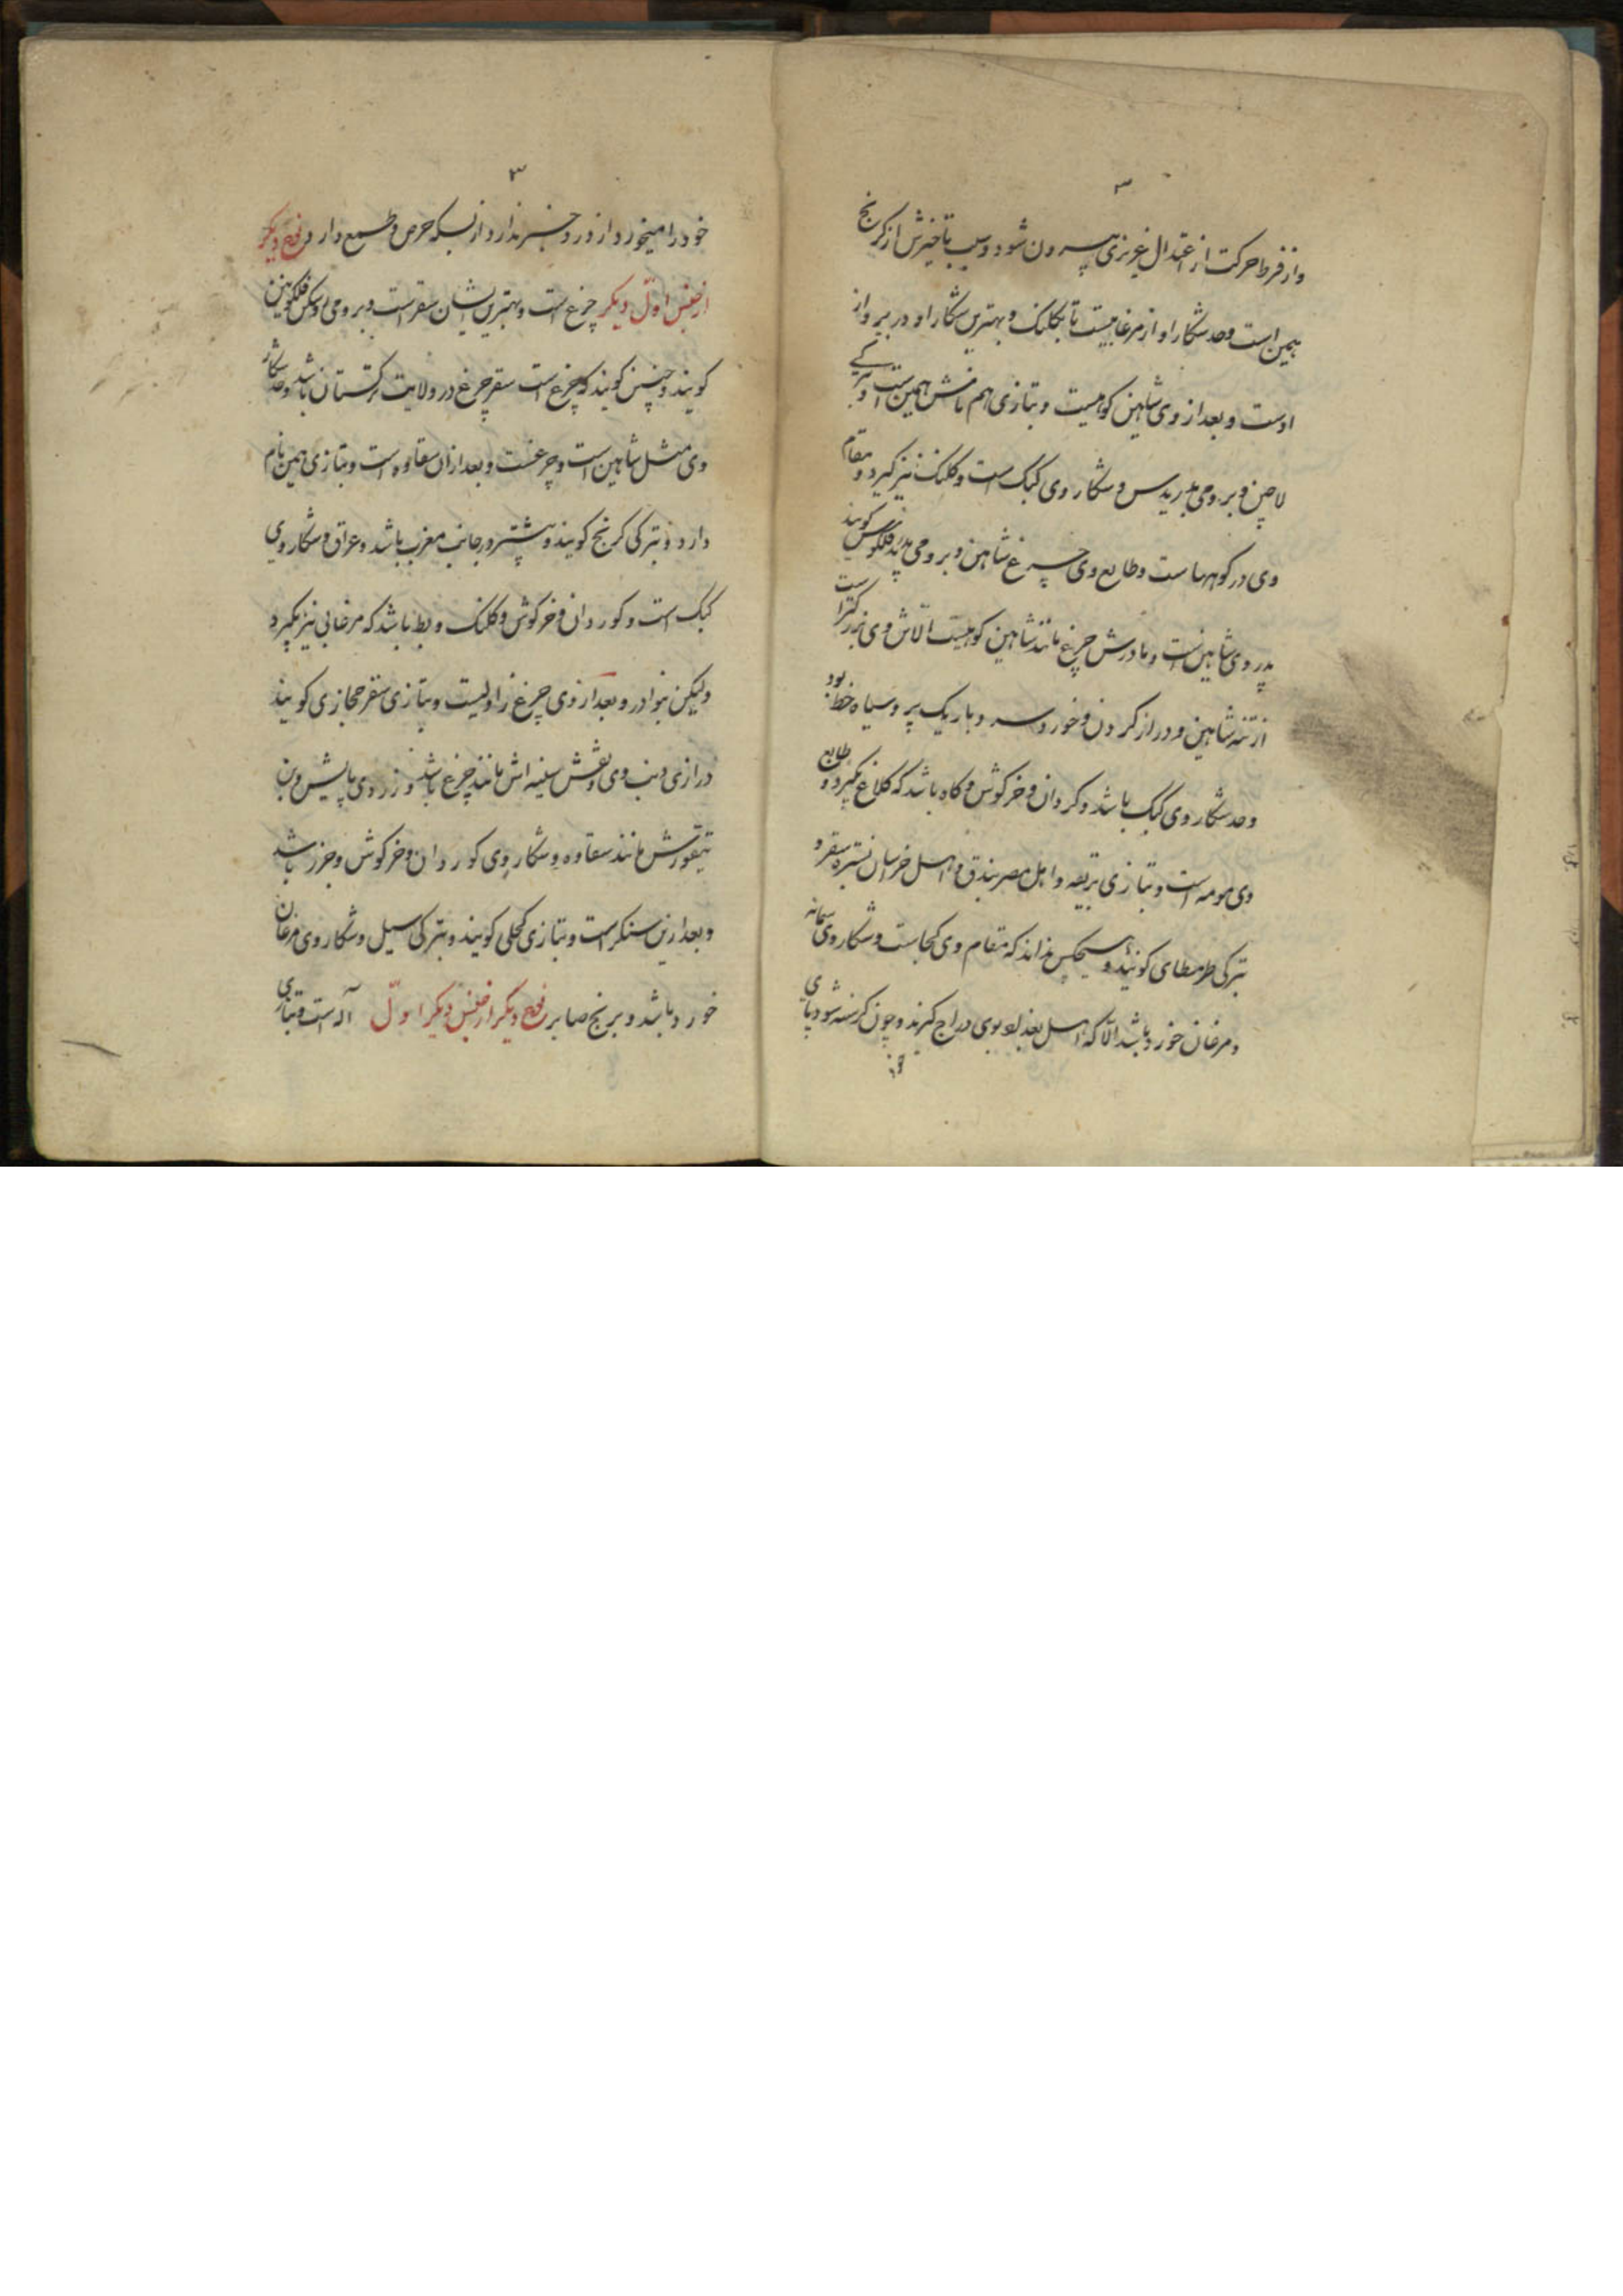 ۳
واز فرط حرکت از اعتدال غریزی بیرون شود و سبب تاخیرش از کرنج
همین است وحد شکار او از مرغابیست تا بکلنک و بهترین شکار او در پرواز
اوست و بعد از وی شاهین کوهیست و بتازی هم نامش همین است و بترکی
لاچین و برومی بدریدس و شکار وی کبک است و کلنک نیز کیرد و مقام
وی در کوهها ست وطابع وی چرغ شاهین و برومی کویند
پدر وی شاهین است و مادرش چرغ مانند شاهین کوهیست الّا تن وی بزرکتر است
از تنه شاهین و دراز کردن و خورد سر و باریک پر و سیاه خط بود
وحد شکار وی کبک باشد و کردان و خرکوش و کاه باشد که کلاغ بکیرد و طابع
وی مومه است و بتازی بریقه و اهل مصر بندق و اهل خراسان سقر و
بترکی طرمطای کویند و هیچکس نداند که مقام وی کجاست و شکار وی سمانه
و مرغان خورد باشد الّا که اهل بغداد بوی دراج کیرند و چون کرسنه شود پای
خود
۳
خود را میخورد و از درد خبر ندارد از بسکه حرص و طمع دارد نوع دیکر
از جنس اوّل دیکر چرغ است و بهترین ایشان سقر است و برومی
کویند و چنین کویند که چرغ است سقر چرغ در ولایت ترکستان باشد وحد شکار
وی مثل شاهین است و چرغست و بعد از ان سقاوه است و بتازی همین نام
دارد و بترکی کرنج کویند و بیشتر در جانب مغرب باشد و عراق و شکار وی
کبک است و کوردان و خرکوش و کلنک و بط باشد که مرغابی نیز بکیرد
ولیکن بنوادر و بعد از وی چرغ زاولیست و بتازی سقر حجازی کویند
درازی دنب وی و نقش سینه اش مانند چرغ باشد و زردی پایش و بن
منقورش مانند سقاوه و شکار وی کوردان و خرکوش و جرز باشد
و بعد ازین سنکر است و بتازی کجلی کویند و بترکی سیل و شکار وی مرغان
خورد باشد و برنج صابر نوع دیکر از جنس دیکر اوّل آله است و بتازی